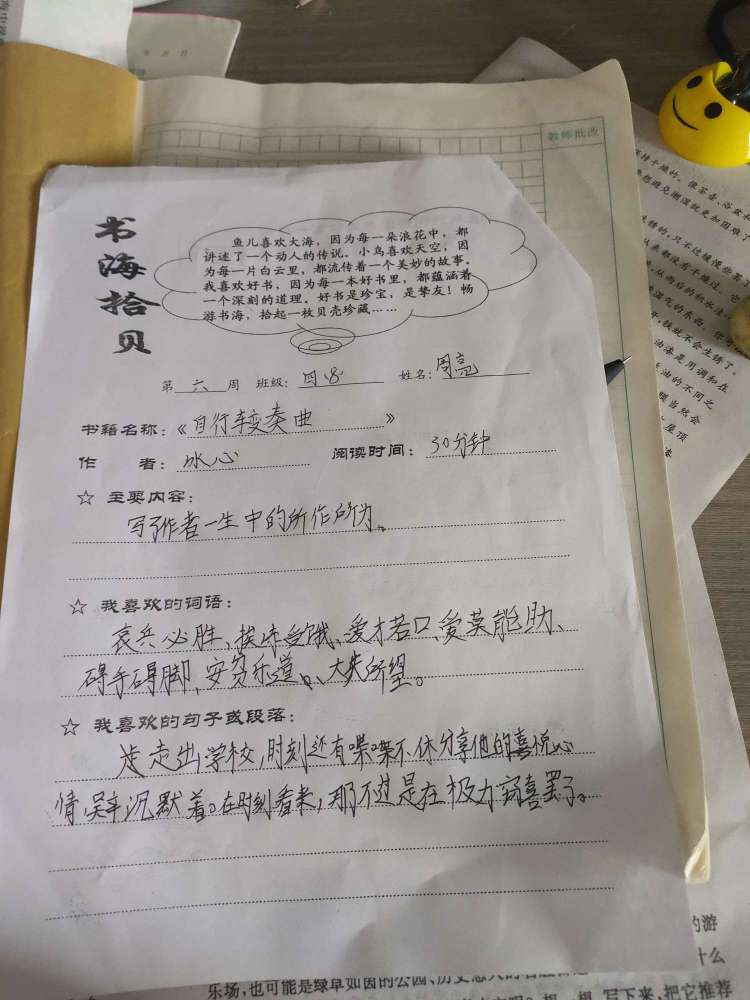 年 月 日
教师批改
书海拾贝
鱼儿喜欢大海，因为每一朵浪花中，都
讲述了一个动人的传说。小鸟喜欢天空，因
为每一片白云里，都流传着一个美妙的故事。
我喜欢好书，因为每一本好书里，都蕴涵着
一个深刻的道理。好书是珍宝，是挚友！畅
游书海，拾起一枚贝壳珍藏……
第 六 周 班级： 四 姓名：周亮
书籍名称：《自行车变奏曲》
作 者：冰心 阅读时间：30分钟
☆ 主要内容：
写了作者一生中的所作所为。
☆ 我喜欢的词语：
哀兵必胜、挨冻受饿、爱才若口、爱莫能助、
碍手碍脚、安贫乐道、大失所望。
☆ 我喜欢的句子或段落：
走出学校，时刻还有喋喋不休分享他的喜悦心
情，吴辛沉默着。在时刻看来，那不过是在极力窃喜罢了。
乐场，也可能是绿草如茵的公园、历史悠久的
的游
什么
写下来，把它推荐